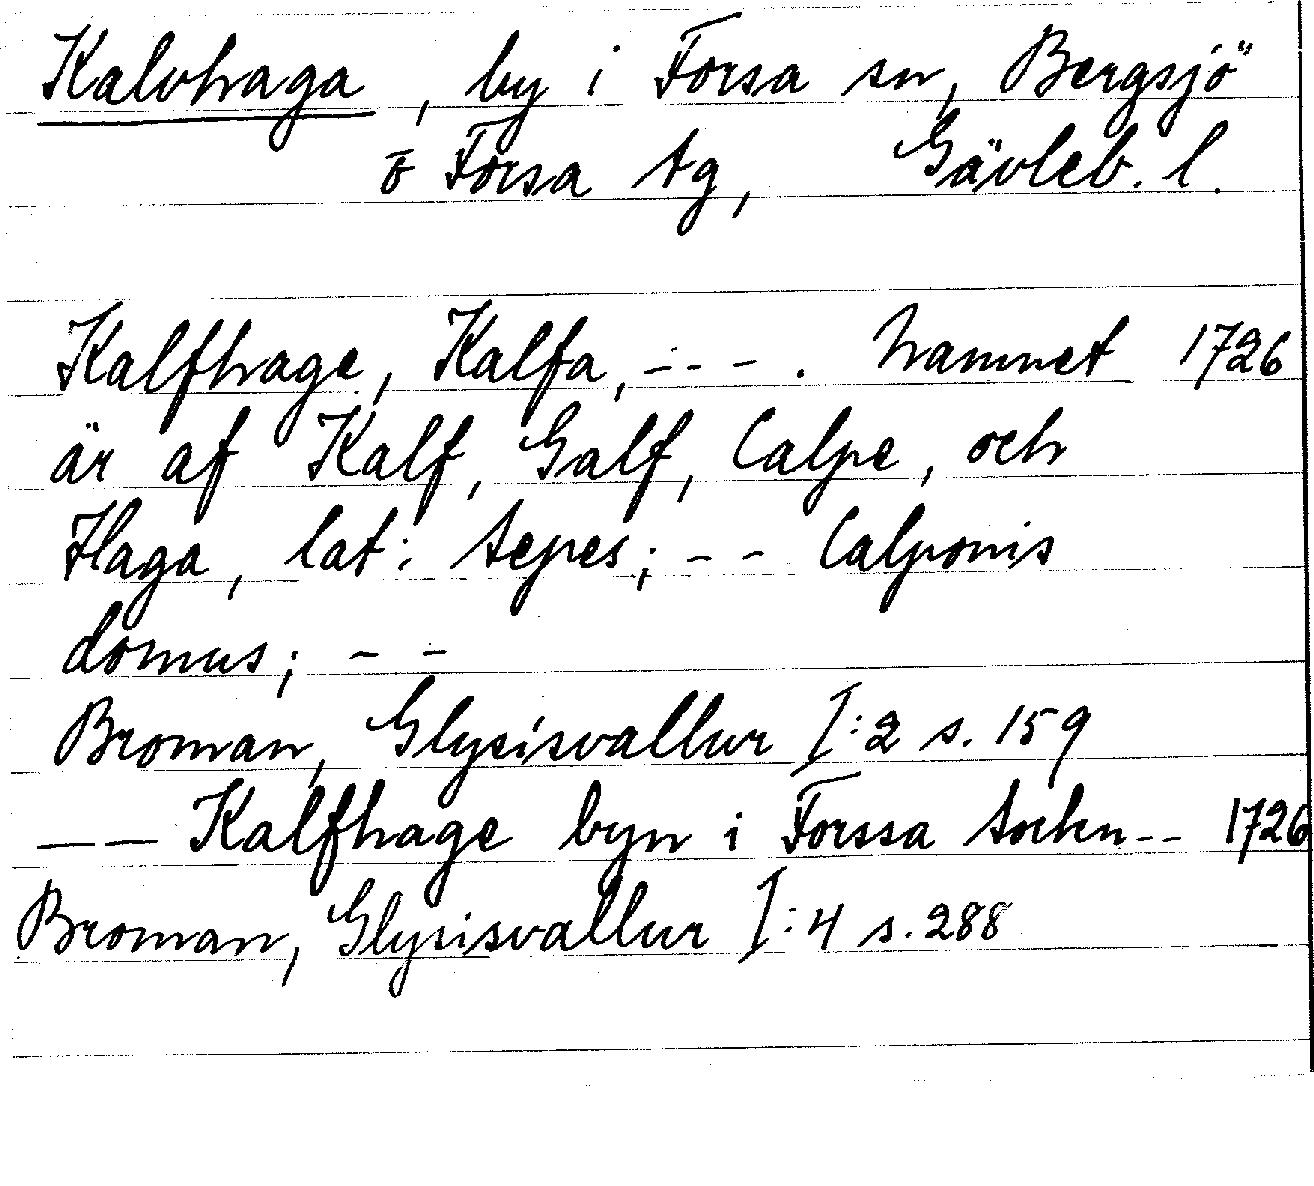 Kalvhaga, by i Forsa sn, Bergsjö
o Forsa tg, Gävleb. l.
Kalfhage, Kalfa, - - - . Namnet 1726
är af Kalf, Galf, Calpe, och
Haga, lat: sepes; - - Calponis
domus; - -
Broman, Glysisvallur I:2 s. 159
- - Kalfhage byn i Forssa sochn - - 1726
Broman, Glysisvallur I:4 s. 288